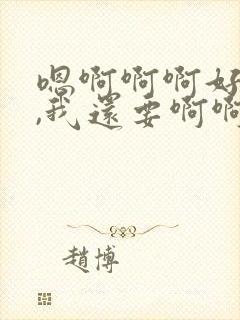 嗯啊啊啊好
,我還要啊啊
趙博